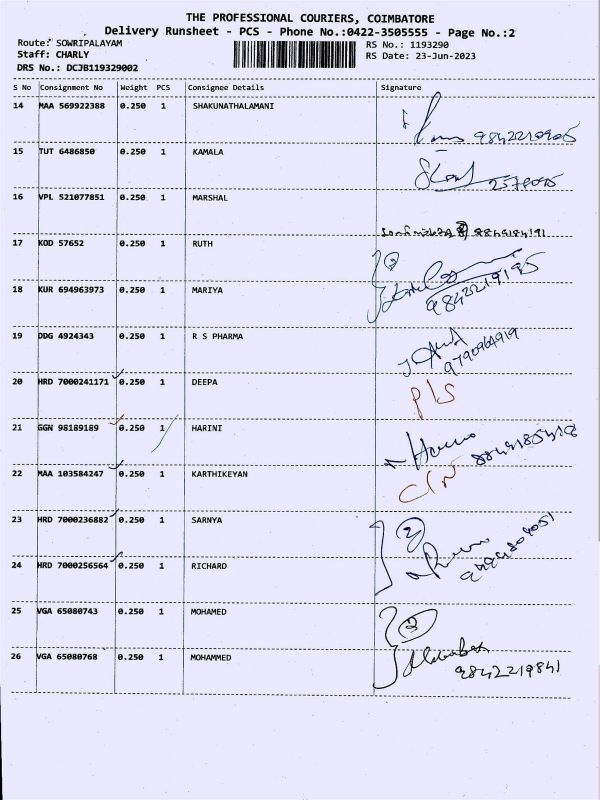 THE PROFESSIONAL COURIERS, COIMBATORE
Delivery Runsheet - PCS - Phone No.:0422-3505555 - Page No.:2
Route: SOWRIPALAYAM RS No.: 1193290
Staff: CHARLY RS Date: 23-Jun-2023
DRS No.: DCJB119329002
S No Consignment No Weight PCS Consignee Details Signature
14 MAA 569922388 0.250 1 SHAKUNATHALAMANI
9842210905
15 TUT 6486850 0.250 1 KAMALA
16 VPL 521077851 0.250 1 MARSHAL
17 KOD 57652 0.250 1 RUTH
2
18 KUR 694963973 0.250 1 MARIYA
9842219195
19 DDG 4924343 0.250 1 R S PHARMA
9790964919
20 HRD 7000241171 0.250 1 DEEPA
P/S
21 GGN 98189189 0.250 1 HARINI
22 MAA 103584247 0.250 1 KARTHIKEYAN
C/N
23 HRD 7000236882 0.250 1 SARNYA
2
24 HRD 7000256564 0.250 1 RICHARD
25 VGA 65080743 0.250 1 MOHAMED
2
26 VGA 65080768 0.250 1 MOHAMMED
9842219841